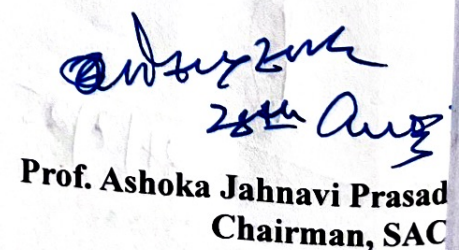 28th Aug
Prof. Ashoka Jahnavi Prasad
Chairman, SAC